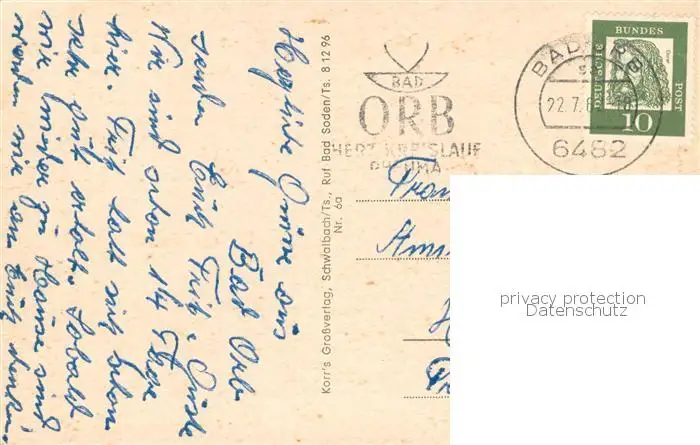 Herzliche Grüsse aus
Bad Orb
senden Euch Fritz u. Gusti
Wir sind schon 14 Tage
hier. Fritz hat sich schon
sehr gut erholt. Sobald
wir wieder zu Hause sind
werden wir an Euch denken.
Korr's Großverlag, Schwalbach/Ts., Ruf Bad Soden/Ts. 8 12 96
Nr. 6a
BAD
ORB
HERZ KREISLAUF
RHEUMA
BAD ORB
22.7.6
6482
DEUTSCHE
BUNDES
POST
Dürer
10
Frau
privacy protection
Datenschutz